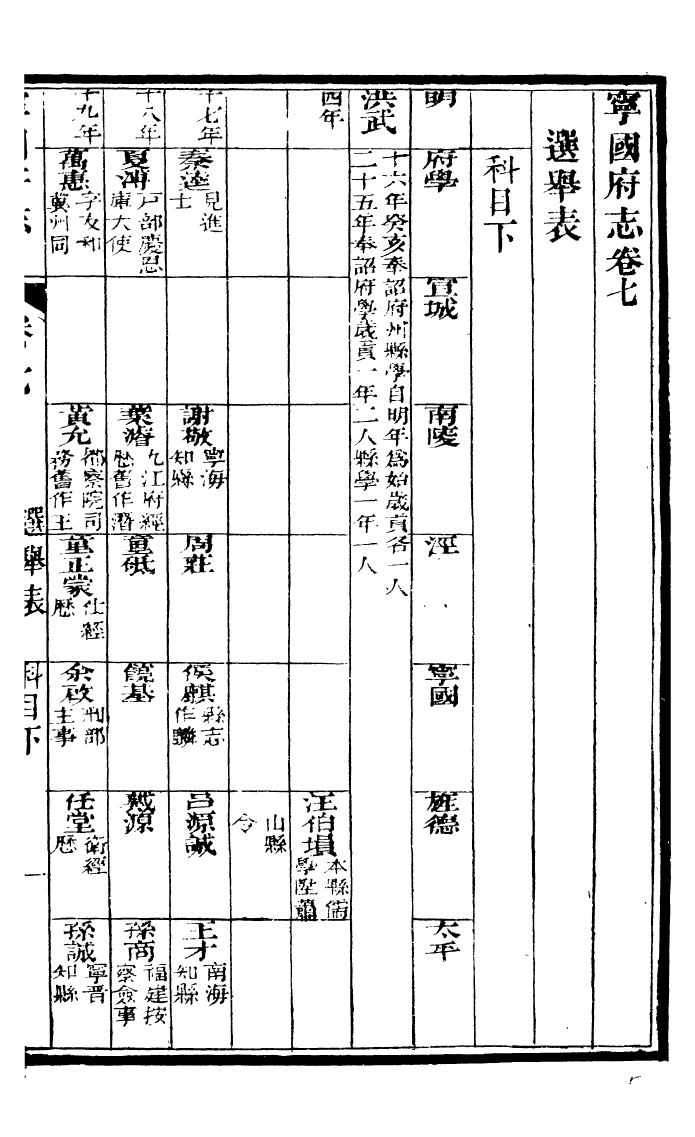 寧國府志卷七
選舉表
科目下
明 府學 宣城 南陵 涇 寧國 旌德 太平
洪武 十六年癸亥奉詔府州縣學自明年爲始歲貢各一人
二十五年奉詔府學歲貢一年二人縣學一年一人
四年 汪伯塤 本縣儒學陞蕭
山縣令
十七年 秦逵 見進士 謝敬 寧海知縣 周莊 侯麒 縣志作麟 呂源誠 王才 南海知縣
十八年 夏溥 戶部慶忍庫大使 葉濬 九江府經歷舊作潛 童砥 饒基 戴源 孫商 福建按察僉事
十九年 萬惠 字友和冀州同 黃允 都察院司務舊作主 童正蒙 仕經歷 余啟 刑部主事 任堂 衛經歷 孫誠 寧晉知縣
選舉表 科目下 一